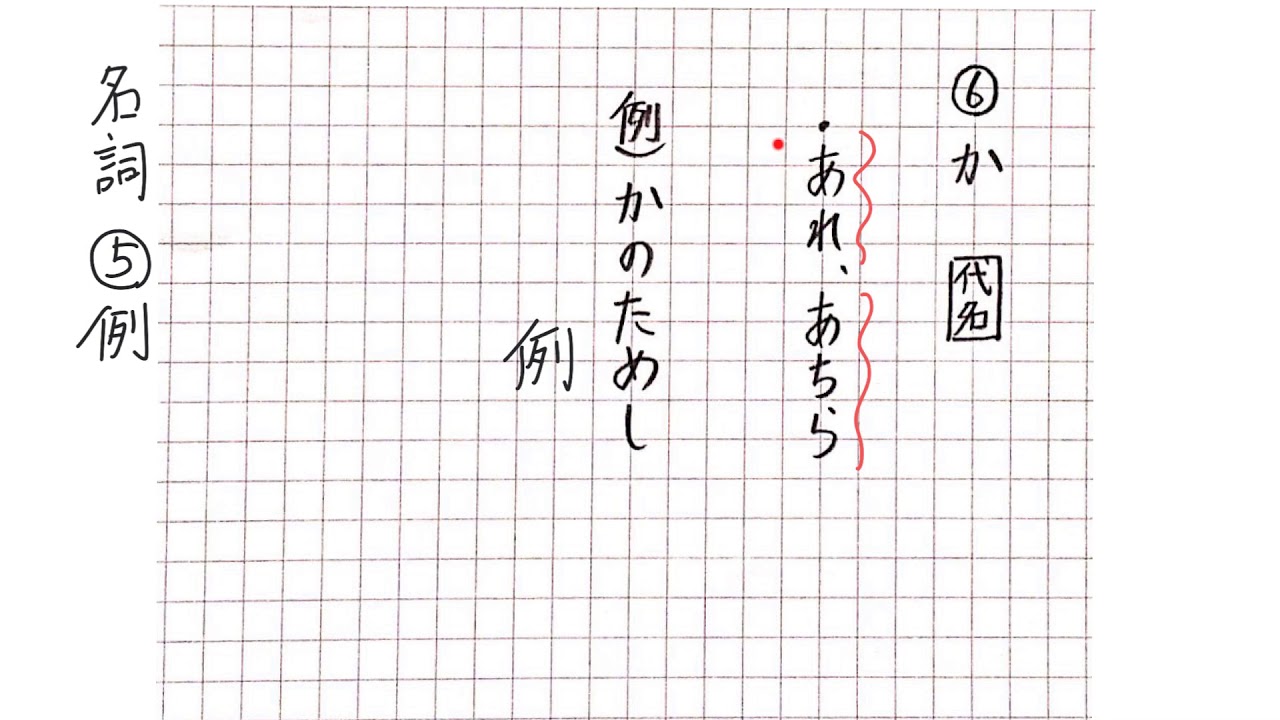 ⑥か 代名
・あれ、あちら
例)かのためし
例
名詞⑤例